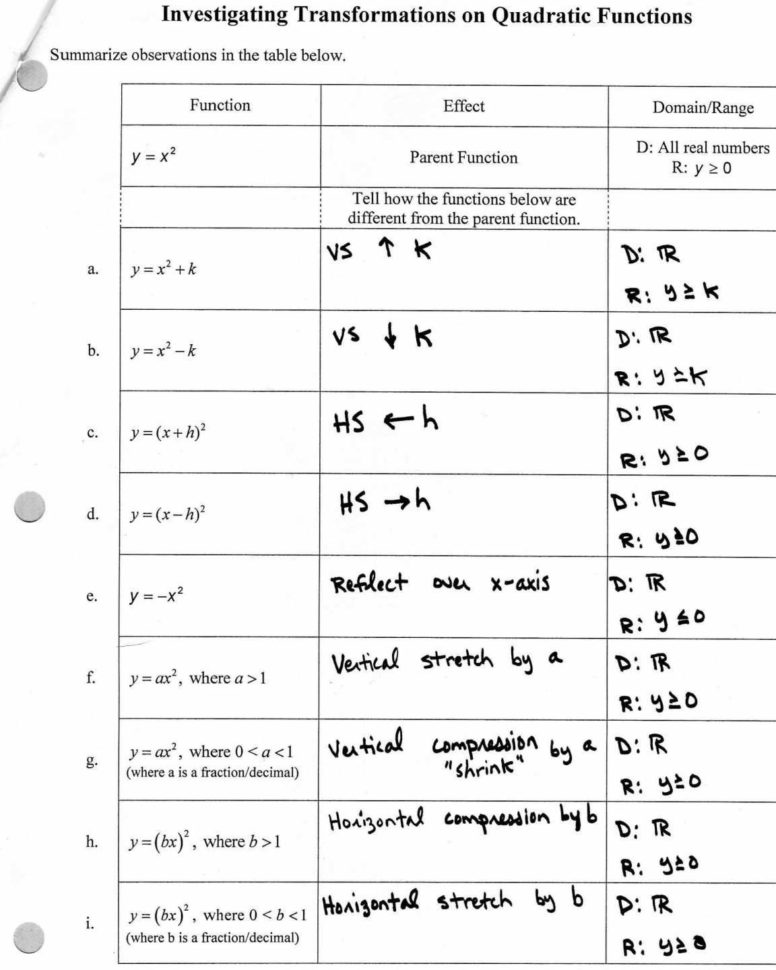 Investigating Transformations on Quadratic Functions
Summarize observations in the table below.
Function Effect Domain/Range
y = x² Parent Function D: All real numbers
R: y ≥ 0
Tell how the functions below are
different from the parent function.
a. y = x² + k VS ↑ K D: ℝ
R: y ≥ K
b. y = x² − k VS ↓ K D: ℝ
R: y ≥ K
c. y = (x + h)² HS ← h D: ℝ
R: y ≥ 0
d. y = (x − h)² HS → h D: ℝ
R: y ≥ 0
e. y = −x² Refilect over x-axis D: ℝ
R: y ≤ 0
f. y = ax², where a > 1 Vertical stretch by a D: ℝ
R: y ≥ 0
g. y = ax², where 0 < a < 1 Vertical compression by a D: ℝ
(where a is a fraction/decimal) "shrink" R: y ≥ 0
h. y = (bx)², where b > 1 Horizontal compression by b D: ℝ
R: y ≥ 0
i. y = (bx)², where 0 < b < 1 Horizontal stretch by b D: ℝ
(where b is a fraction/decimal) R: y ≥ 0